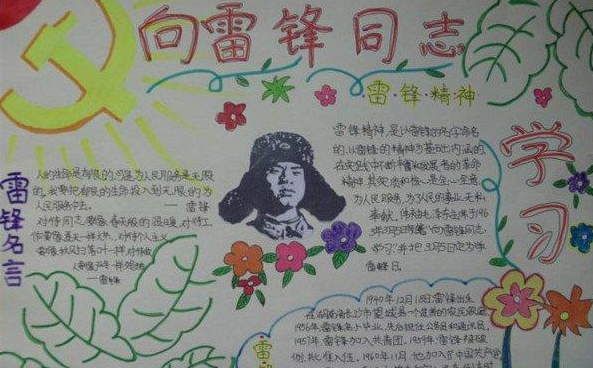 向雷锋同志
学习
雷·锋·精·神
雷锋精神,是以雷锋的名字命名
的,以雷锋的精神为基本内涵的
在实践中不断丰富和发展着的革命
精神其实质和核心是全心全意
为人民服务,为人民的事业无私
奉献,
3月5日定为学
雷锋日。
雷锋名言
人的生命是有限的,可是,为人民服务是无限
的,我要把有限的生命投入到无限的为
人民服务中去。
——雷锋
对待同志要像春天般的温暖,对待工
作要像夏天一样火热,对待个人主义
要像秋风扫落叶一样,对待敌
人要像严冬一样
——雷锋
1940年12月18日雷锋出生
在湖南省长沙市望城县一个贫苦的农民家庭
1956年雷锋小学毕业,先后担任公务员和通讯员。
1957年雷锋加入共青团。1959年雷锋
批准入伍。1960年11月他加入了中国共产党